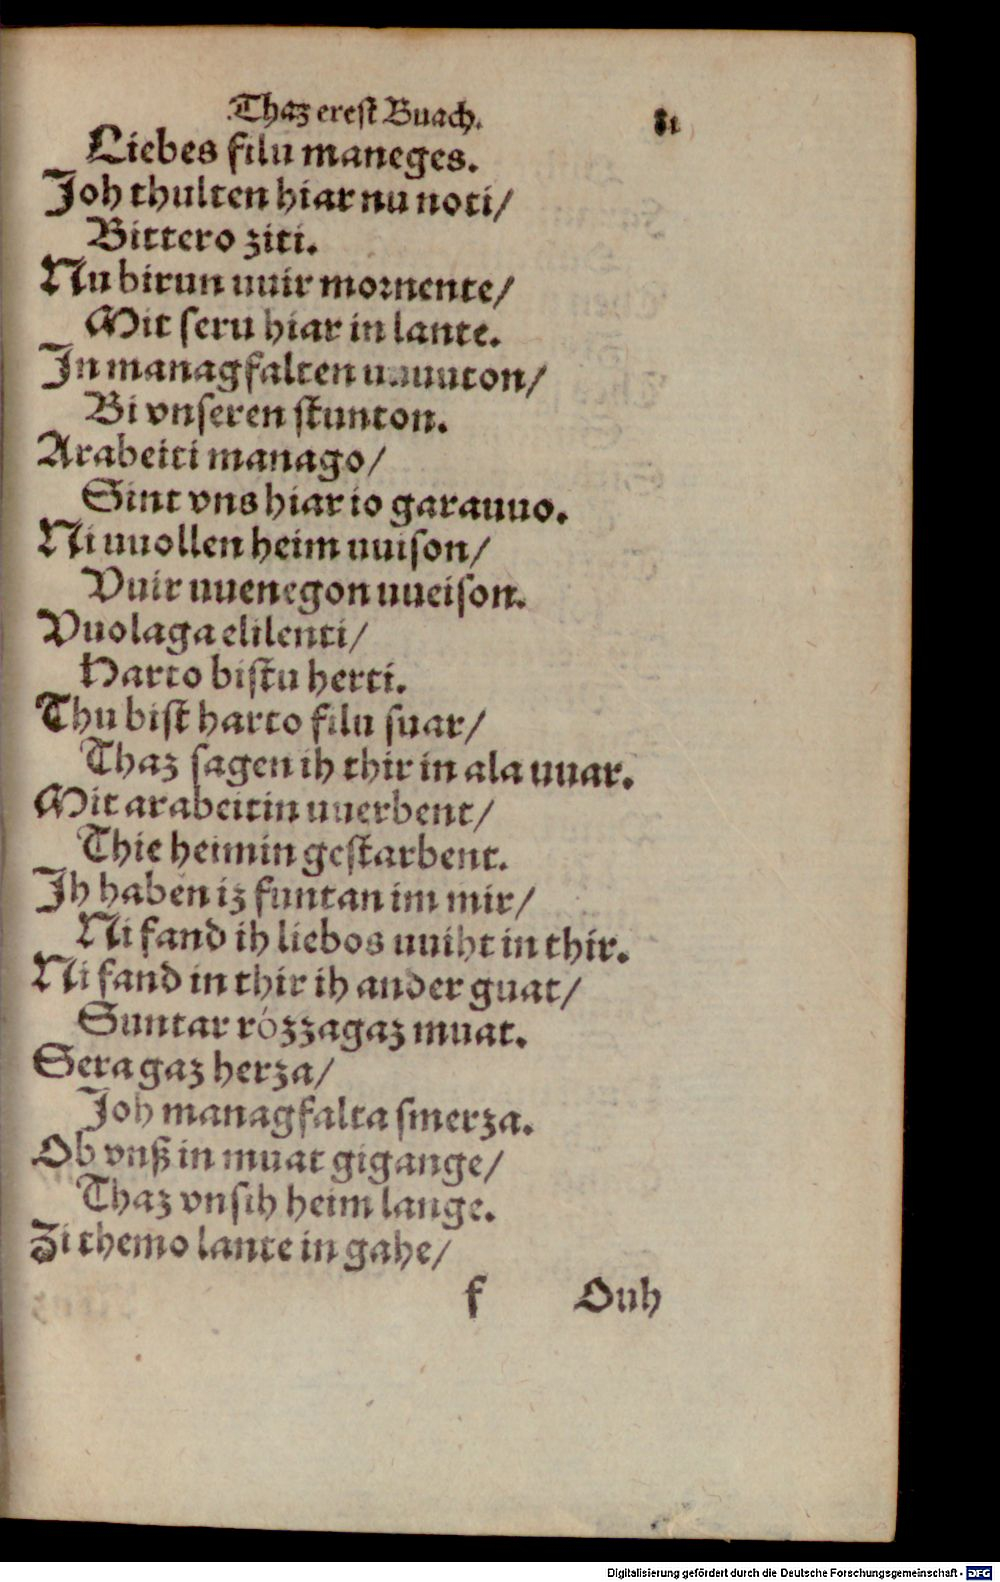 Thaz erest Buach. 81
Liebes filu maneges.
Joh thulten hiar nu noti/
Bittero ziti.
Nu birun uuir mornente/
Mit seru hiar in lante.
In managfalten uuunton/
Bi vnseren stunton.
Arabeiti manago/
Sint vns hiar io garauuo.
Ni uuollen heim uuison/
Vuir uuenegon uueison.
Vuolaga elilenti/
Harto bistu herti.
Thu bist harto filu suar/
Thaz sagen ih thir in ala uuar.
Mit arabeitin uuerbent/
Thie heimin gestarbent.
Ih haben iz funtan im mir/
Ni fand ih liebos uuiht in thir.
Ni fand in thir ih ander guat/
Suntar rózzagaz muat.
Seragaz herza/
Joh managfalta smerza.
Ob vnß in muat gigange/
Thaz vnsih heim lange.
Zi themo lante in gahe/
f Ouh
Digitalisierung gefördert durch die Deutsche Forschungsgemeinschaft - DFG